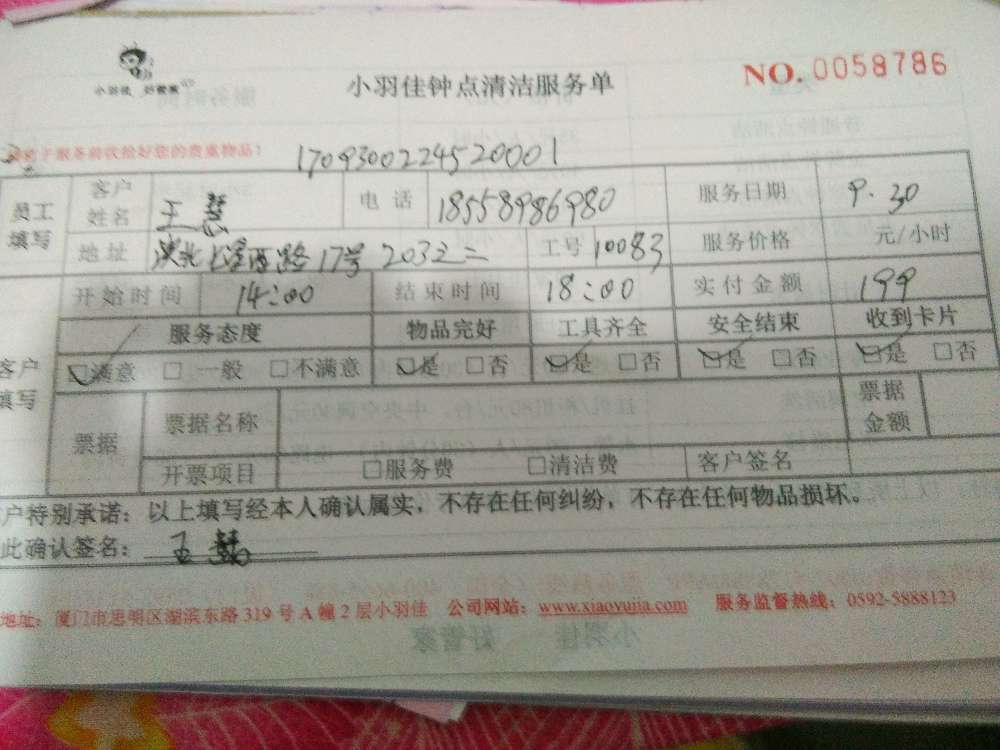 小羽佳 好管家
小羽佳钟点清洁服务单
NO. 0058786
服务前收拾好您的贵重物品!
1709300224520001
员工填写 客户姓名 王慧 电话 18558986980 服务日期 9.30
地址 17号 2032 工号 10083 服务价格 元/小时
开始时间 14:00 结束时间 18:00 实付金额 199
服务态度 物品完好 工具齐全 安全结束 收到卡片
客户填写 ☑满意 □一般 □不满意 ☑是 □否 ☑是 □否 ☑是 □否 ☑是 □否
票据 票据名称 票据金额
开票项目 □服务费 □清洁费 客户签名
户特别承诺:以上填写经本人确认属实,不存在任何纠纷,不存在任何物品损坏。
此确认签名: 王慧
地址:厦门市思明区湖滨东路 319 号 A 幢 2 层小羽佳 公司网站:www.xiaoyujia.com 服务监督热线:0592-5888123